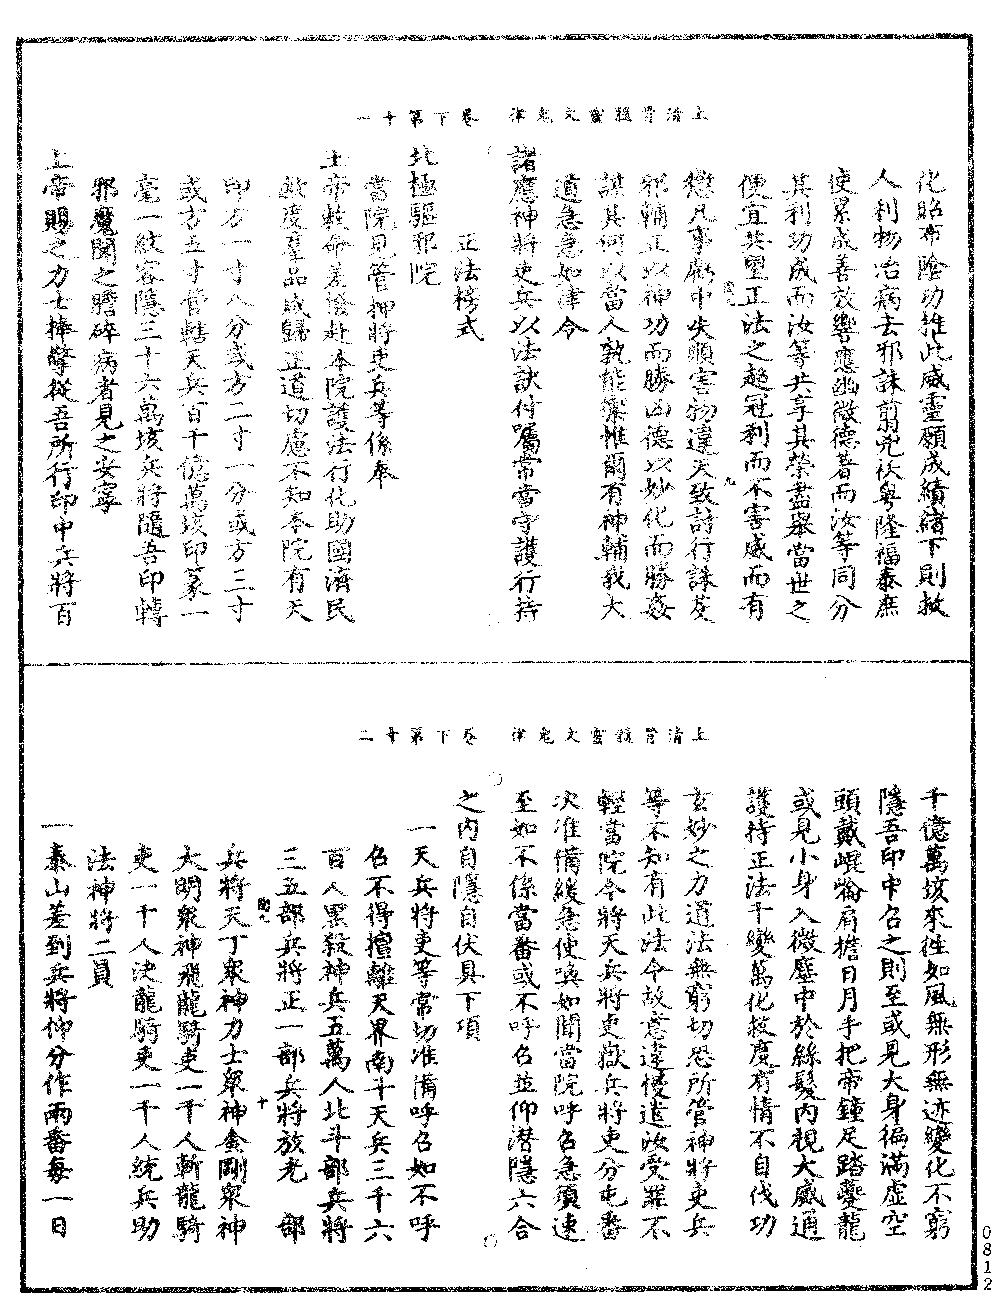 上清骨髓靈文鬼律　卷下第十一
化昭布陰功推此威靈願成績緒下則救
人利物治病去邪誅翦兇祅粤隆福泰庶
使累成善放響應幽微德著而汝等同分
其利功成而汝等共享其榮盡舉當世之
便宜共塱正法之超冠利而不害威而有
懲凡事虧中失順害物違天致討行誅芟
邪輔正以神功而勝凶德以妙化而勝姦
謀其何以當人孰能禦惟爾有神輔我大
道急急如律令
諸應神將吏兵以法訣付囑常當守護行持
正法移式
北極驅邪院
當院見管押將吏兵等係奉
上帝敕命差撥赴本院護法行化助國濟民
救度羣品咸歸正道切慮不知本院有天
印方一寸八分或方二寸一分或方三寸
或方五寸管轄天兵百千億萬垓印篆一
毫一紋容隱三十六萬垓兵將隨吾印轉
邪魔聞之膽碎病者見之安寧
上帝賜之力士捧擎從吾所行印中兵將百
上清骨髓靈文鬼律　卷下第十二
千億萬垓來往如風無形無迹變化不窮
隱吾印中召之則至或見大身徧滿虛空
頭戴崐崘肩擔日月手把帝鐘足踏夔龍
或見小身入微塵中於絲髮內視大威通
護持正法千變萬化救度有情不自伐功
玄妙之力道法無窮切恐所管神將吏兵
等不知有此法令故意違慢遣汝受罪不
輕當院令將天兵將吏嶽兵將吏分屯番
次准備緩急使喚如聞當院呼召急須速
至如不係當番或不呼召並仰潛隱六合
之內自隱自伏具下項
一天兵將吏等常切准備呼召如不呼
召不得擅離天界南斗天兵三千六
百人黑殺神兵五萬人北斗部兵將
三五部兵將正一部兵將放光　部
兵將天丁衆神力士衆神金剛衆神
大明衆神飛龍騎吏一千人斬龍騎
吏一千人決龍騎吏一千人統兵助
法神將二員
一泰山差到兵將仰分作兩番每一日
0812